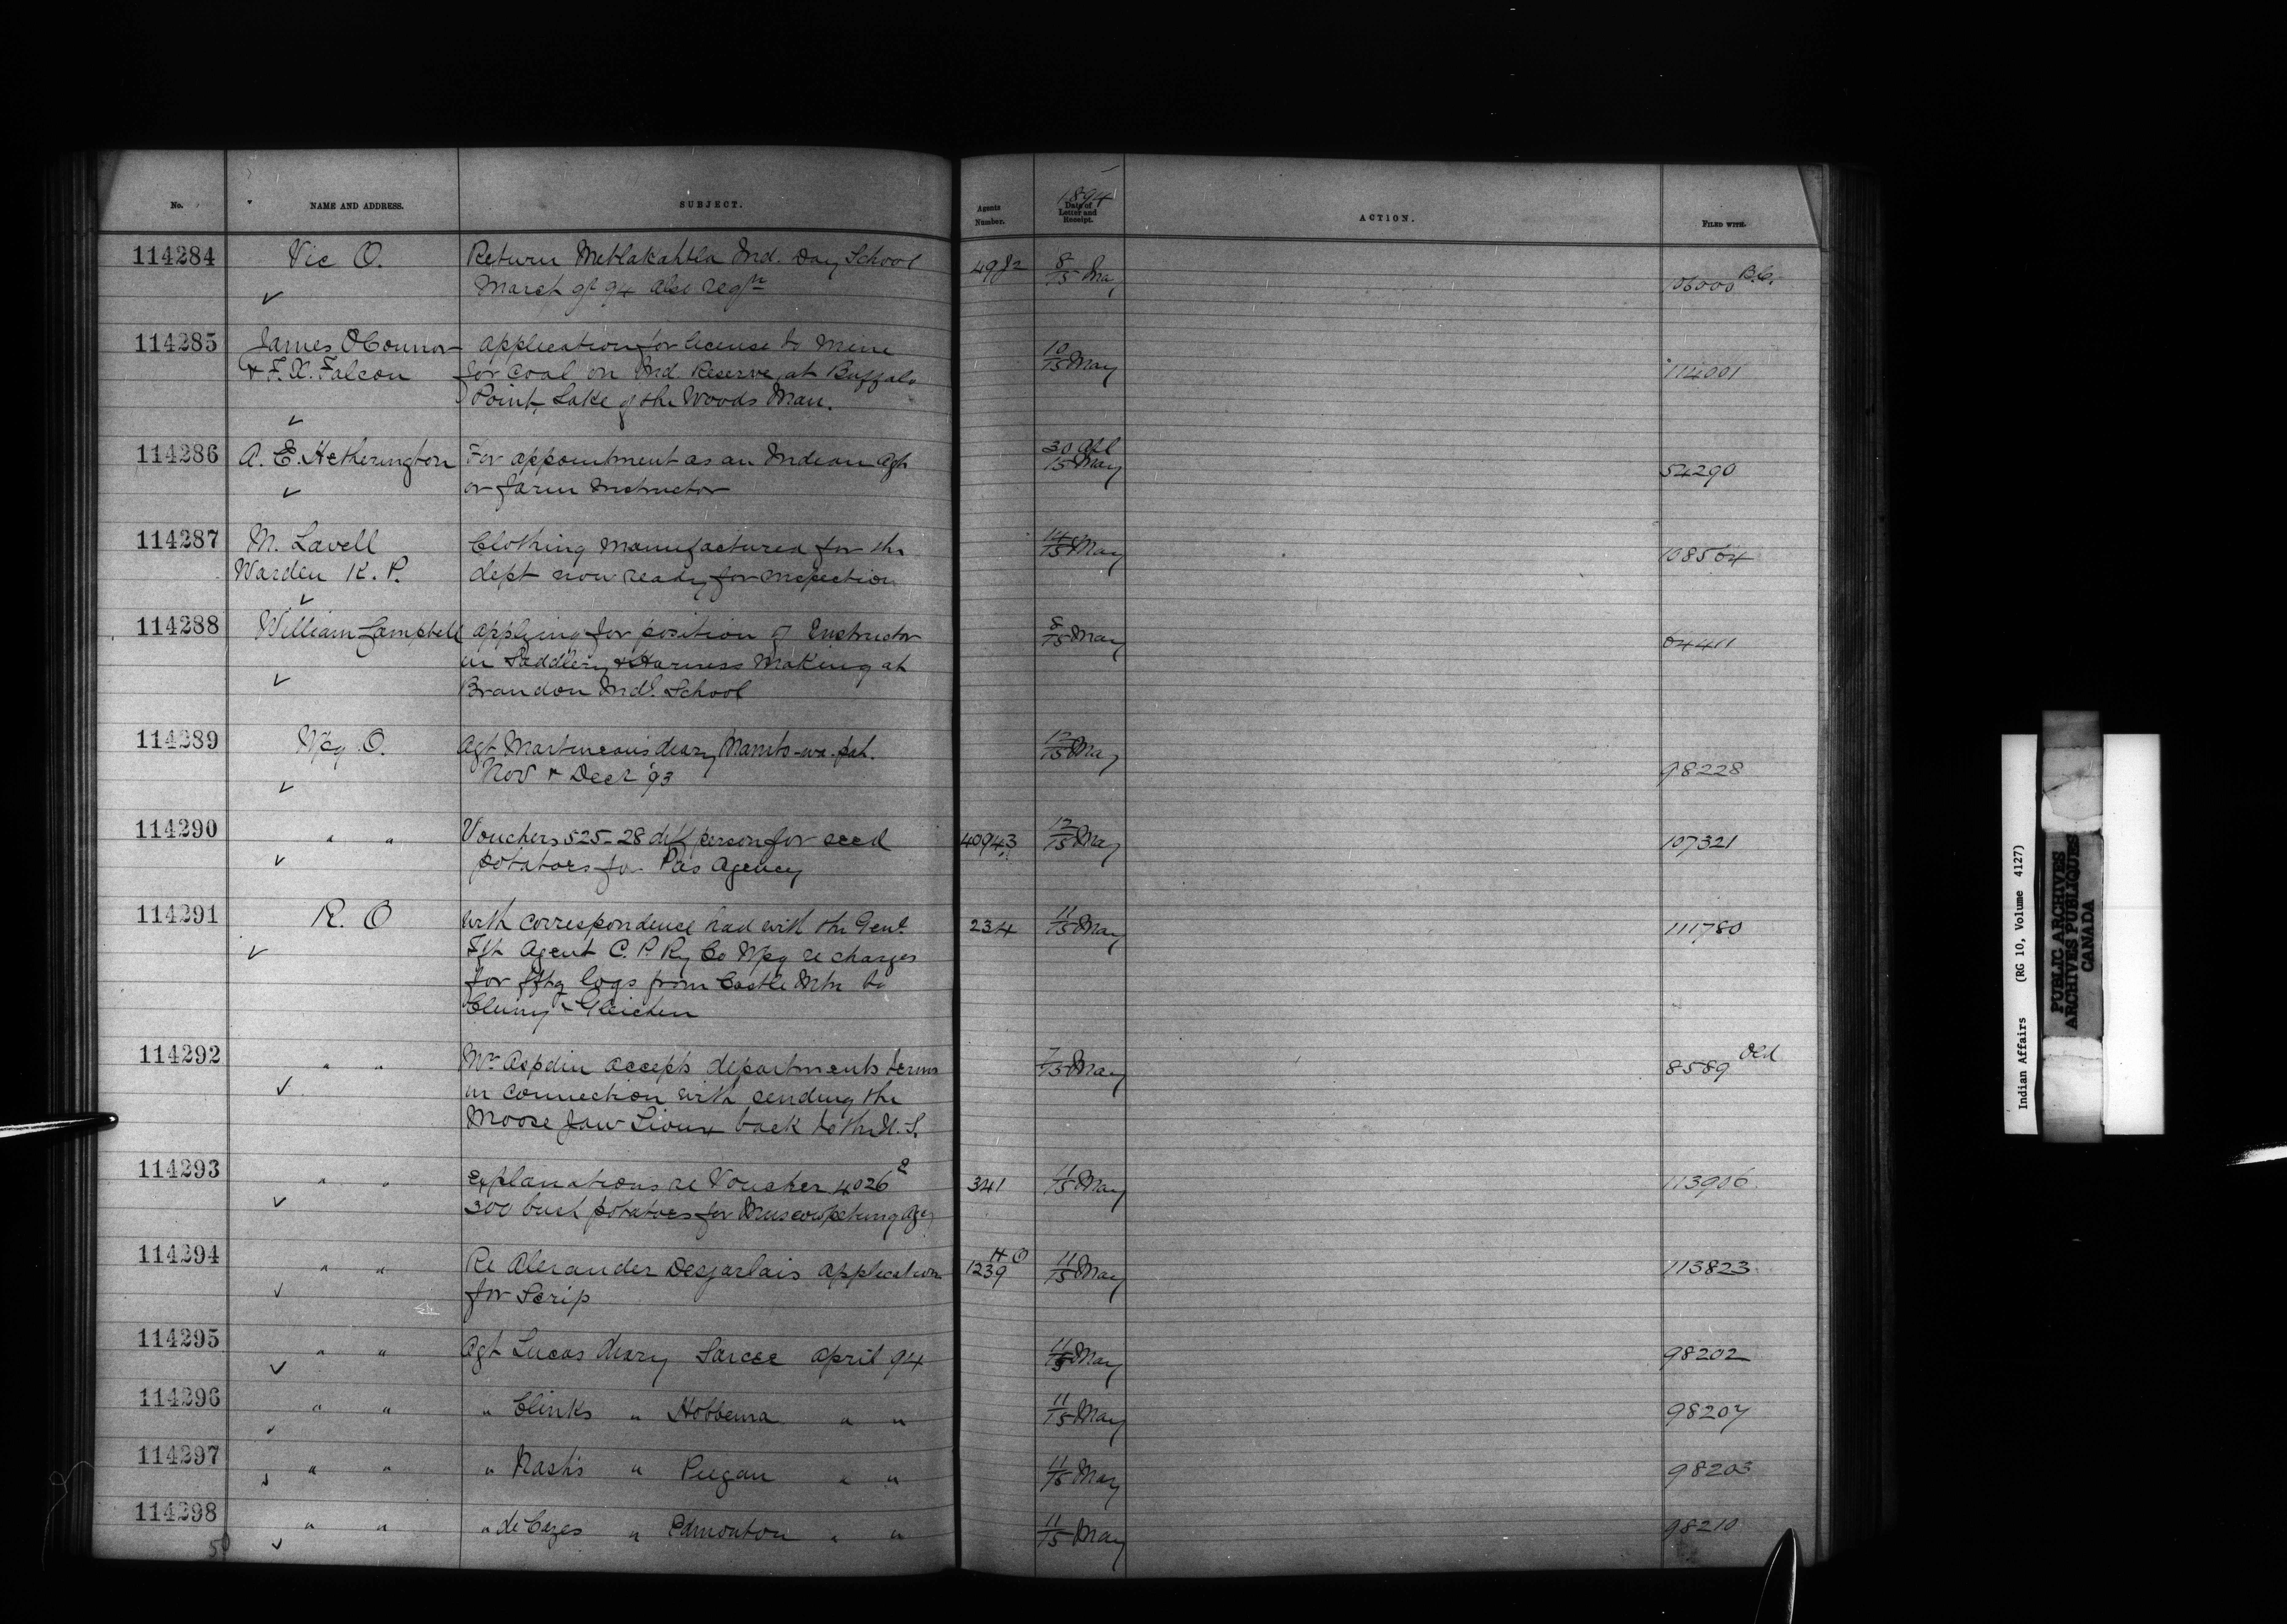 No. NAME AND ADDRESS. SUBJECT. Agents Number. 1894 Date of Letter and Receipt. ACTION. FILED WITH.
114284 Vic O. Return Metlakahtla Ind. Day School 4982 8/15 May 106000 B.C.
March qr 94 also reqn
114285 James OConnor Application for license to mine 10/15 May 114001
& F. X. Falcon for coal on Ind. Reserve at Buffalo
Point, Lake of the Woods Man.
114286 A. E. Hetherington For appointment as an Indian Agt 30 Apl 15 May 54290
or farm Instructor
114287 M. Lavell Clothing manufactured for the 14/15 May 108564
Warden K. P. dept now ready for inspection
114288 William Campbell Applying for position of Instructor 8/15 May 64411
in Saddlery & Harness Making at
Brandon Indl. School
114289 Wpg O. Agt Martineau's diary Manito-wa-pah. 12/15 May 98228
Nov & Decr '93
114290 " " Vouchers 525-28 diff person for seed 40943 12/15 May 107321
potatoes for Pas Agency
114291 R. O With correspondence had with the Genl. 234 11/15 May 111780
Fft Agent C. P. Ry Co Wpg re charges
for fftg logs from Castle Mtn to
Cluny & Gleichen
114292 " " Mr Aspdin accepts departments terms 7/15 May 8589 Old
in connection with sending the
Moose Jaw Sioux back to the U. S.
114293 " " Explanations re Voucher 4026 341 11/15 May 113906
300 bush potatoes for Muscowpetung Agcy
114294 " " Re Alexander Desjarlais application 1239 H O 11/15 May 113823
for Scrip
114295 " " Agt Lucas diary Sarcee April 94 11/15 May 98202
114296 " " " Clinks " Hobbema " " 11/15 May 98207
114297 " " " Nash's " Piegan " " 11/15 May 98203
114298 " " " de Cazes " Edmonton " " 11/15 May 98210
50
Indian Affairs (RG 10, Volume 4127)
PUBLIC ARCHIVES
ARCHIVES PUBLIQUES
CANADA